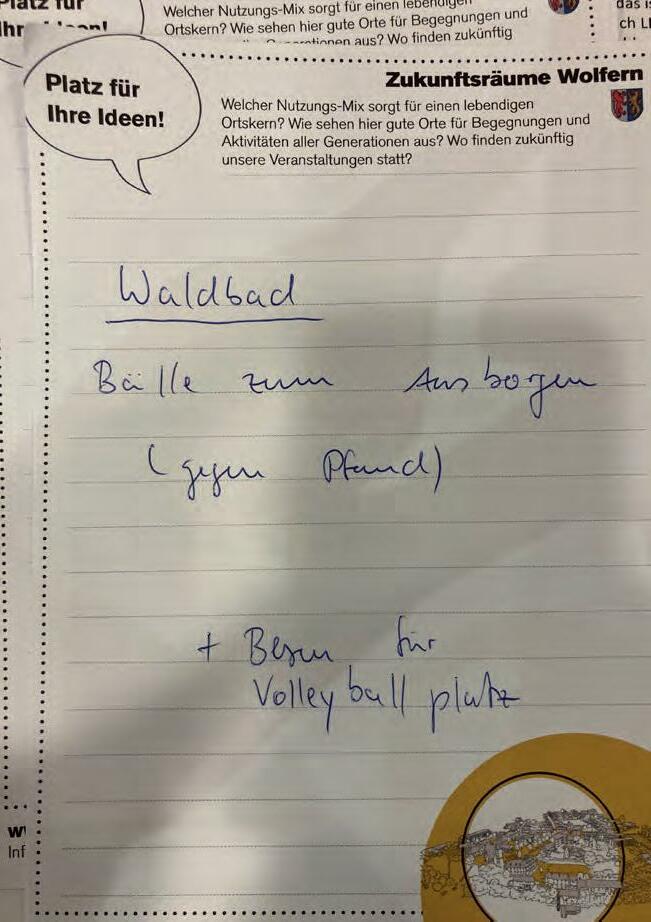 Platz für
Welcher Nutzungs-Mix sorgt für einen lebendigen
Ortskern? Wie sehen hier gute Orte für Begegnungen und
aus? Wo finden zukünftig
das is
ch
Platz für
Ihre Ideen!
Zukunftsräume Wolfern
Welcher Nutzungs-Mix sorgt für einen lebendigen
Ortskern? Wie sehen hier gute Orte für Begegnungen und
Aktivitäten aller Generationen aus? Wo finden zukünftig
unsere Veranstaltungen statt?
Waldbad
Bälle zum Ausborgen
(gegen Pfand)
+ Besen für
Volleyballplatz
Inf